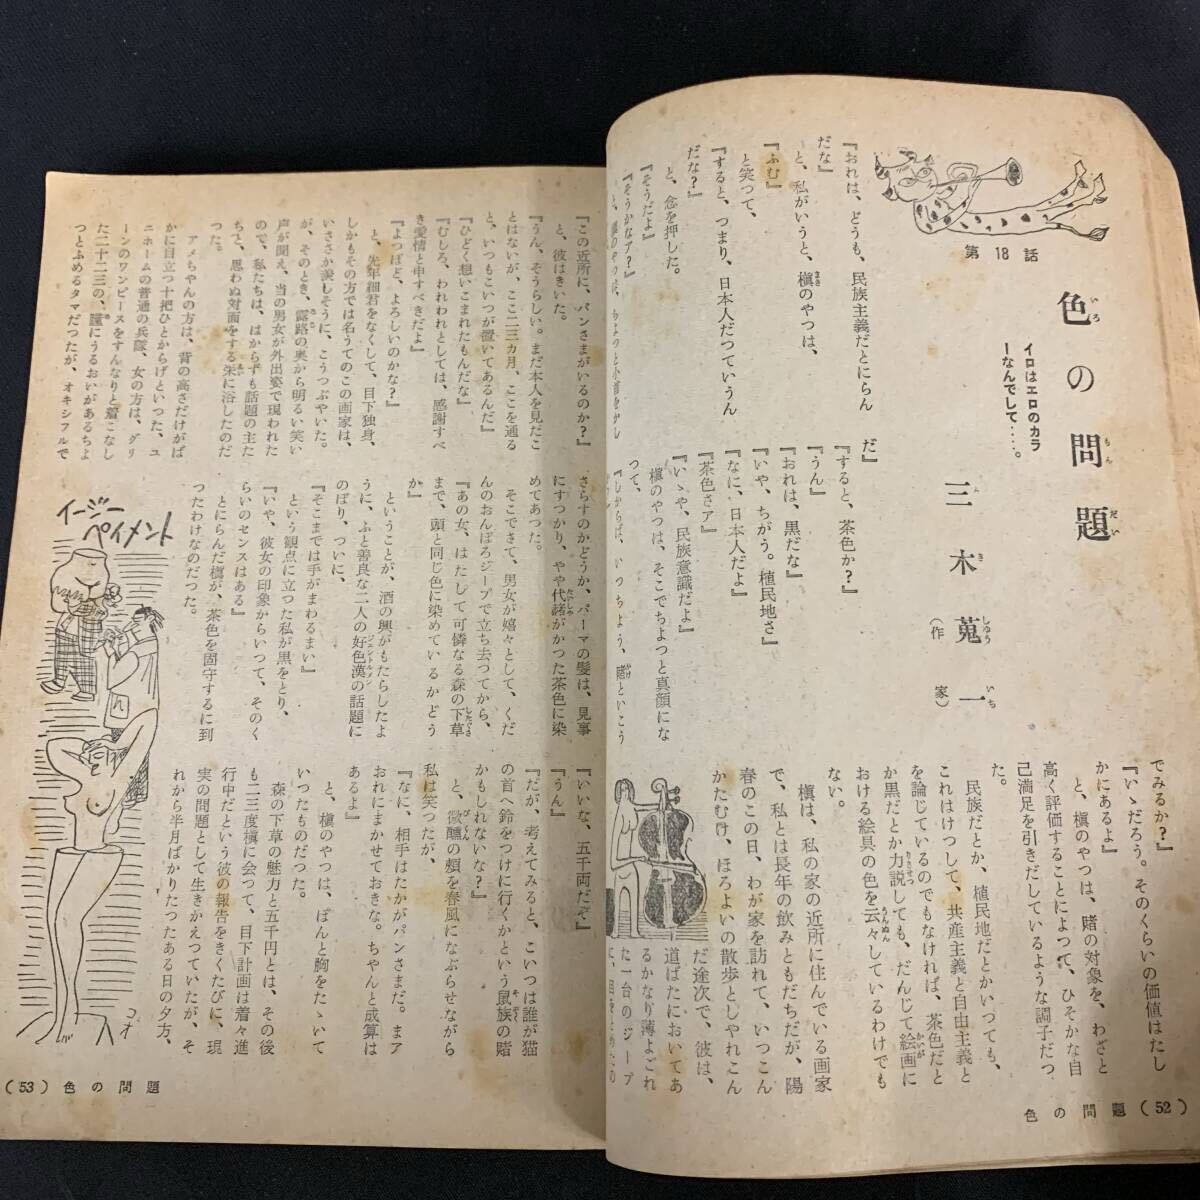 第18話
色の問題
いろ
もんだい
イロはエロのカラ
ーなんでして‥‥。
三木蒐一
み き しゆう いち
(作家)
『おれは、どうも、民族主義だとにらん
だな』
と、私がいうと、槇のやつは、
『ふむ』
と笑つて、
『すると、つまり、日本人だつていうん
だな?』
と、念を押した。
『そうだよ』
『そうかなア?』
と、槇のやつは、ちよつと小首をかし
だ』
『すると、茶色か?』
『うん』
『おれは、黒だな』
『いや、ちがう。植民地さ』
『なに、日本人だよ』
『茶色さア』
『いゝや、民族意識だよ』
槇のやつは、そこでちよつと真顔にな
つて、
『しからば、いつちよう、賭といこう
でみるか?』
『いゝだろう。そのくらいの価値はたし
かにあるよ』
と、槇のやつは、賭の対象を、わざと
高く評価することによつて、ひそかな自
己満足を引きだしているような調子だつ
た。
民族だとか、植民地だとかいつても、
これはけつして、共産主義と自由主義と
を論じているのでもなければ、茶色だと
か黒だとか力説しても、だんじて絵画に
おける絵具の色を云々しているわけでも
ない。
槇は、私の家の近所に住んでいる画家
で、私とは長年の飲みともだちだが、陽
春のこの日、わが家を訪れて、いつこん
かたむけ、ほろよいの散歩としやれこん
だ途次で、彼は、
道ばたにおいてあ
るかなり薄よごれ
た一台のジープ
に、目をとめたの
色の問題(52)
『この近所に、パンさまがいるのか?』
と、彼はきいた。
『うん、そうらしい。まだ本人を見たこ
とはないが、ここ二三カ月、ここを通る
と、いつもこいつが置いてあるんだ』
『ひどく想いこまれたもんだな』
『むしろ、われわれとしては、感謝すべ
き愛情と申すべきだよ』
『よつぽど、よろしいのかな?』
と、先年細君をなくして、目下独身、
しかもその方では名うてのこの画家は、
いささか羨しそうに、こうつぶやいた。
が、そのとき、露路の奥から明るい笑い
声が聞え、当の男女が外出姿で現われた
ので、私たちは、はからずも話題の主た
ちと、思わぬ対面をする栄に浴したのだ
つた。
アメちやんの方は、背の高さだけがば
かに目立つ十把ひとからげといつた、ユ
ニホームの普通の兵隊、女の方は、グリ
ーンのワンピースをすんなりと着こなし
た二十二三の、瞳にうるおいがあるちよ
つとふめるタマだつたが、オキシフルで
さらすのかどうか、パーマの髪は、見事
にすつかり、やや代赭がかつた茶色に染
めてあつた。
そこでさて、男女が嬉々として、くだ
んのおんぼろジープで立ち去つてから、
『あの女、はたして可憐なる森の下草
まで、頭と同じ色に染めているかどう
か』
ということが、酒の興がもたらしたよ
うに、ふと善良な二人の好色漢の話題に
のぼり、ついに、
『そこまでは手がまわるまい』
という観点に立つた私が黒をとり、
『いや、彼女の印象からいつて、そのく
らいのセンスはある』
とにらんだ槇が、茶色を固守するに到
つたわけなのだつた。
『いいな、五千両だぞ』
『うん』
『だが、考えてみると、こいつは誰が猫
の首へ鈴をつけに行くかという鼠族の賭
かもしれないな?』
と、微醺の頰を春風になぶらせながら
私は笑つたが、
『なに、相手はたかがパンさまだ。まア
おれにまかせておきな。ちやんと成算は
あるよ』
と、槇のやつは、ぽんと胸をたゝいて
いつたものだつた。
森の下草の魅力と五千円とは、その後
も二三度槇に会つて、目下計画は着々進
行中だという彼の報告をきくたびに、現
実の問題として生きかえつていたが、そ
れから半月ばかりたつたある日の夕方、
イージー
ペイメント
コオ
(53)色の問題